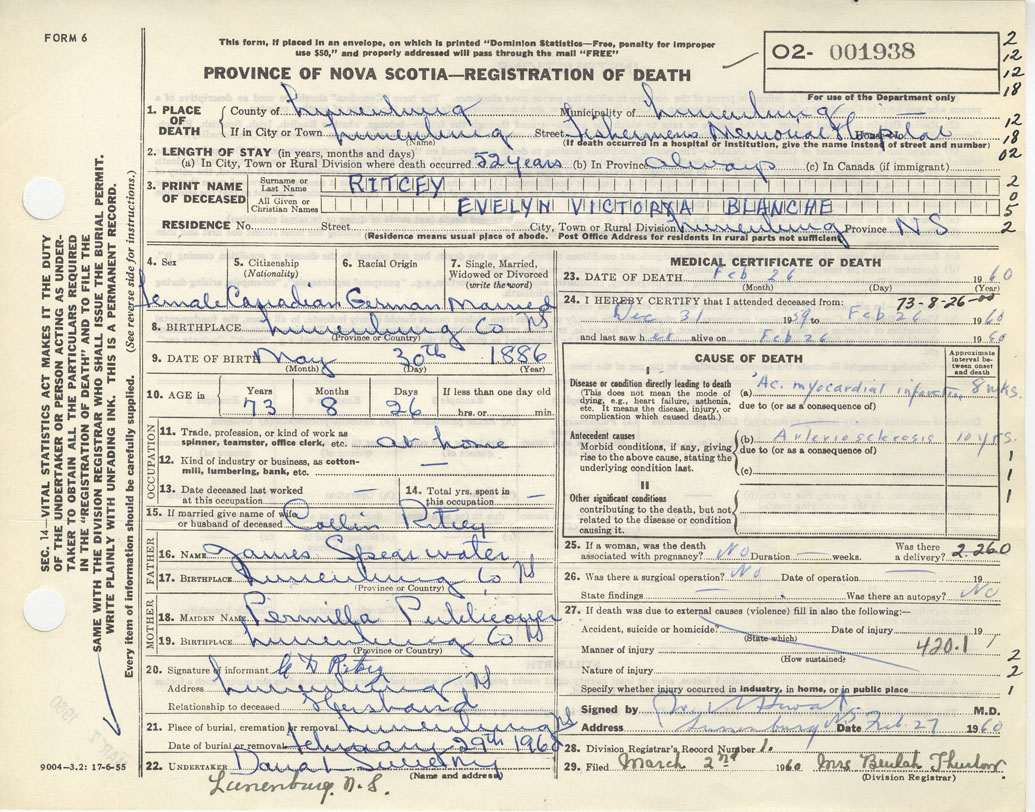 FORM 6
This form, if placed in an envelope, on which is printed "Dominion Statistics—Free, penalty for improper
use $50," and properly addressed will pass through the mail "FREE"
O2- 001938
For use of the Department only
PROVINCE OF NOVA SCOTIA—REGISTRATION OF DEATH
2
12
12
18
12
18
02
2
0
5
2
SEC. 14—VITAL STATISTICS ACT MAKES IT THE DUTY
OF THE UNDERTAKER OR PERSON ACTING AS UNDER-
TAKER TO OBTAIN ALL THE PARTICULARS REQUIRED
IN THE "REGISTRATION OF DEATH" AND TO FILE THE
SAME WITH THE DIVISION REGISTRAR WHO SHALL ISSUE THE BURIAL PERMIT.
WRITE PLAINLY WITH UNFADING INK. THIS IS A PERMANENT RECORD.
Every item of information should be carefully supplied. (See reverse side for instructions.)
1. PLACE OF DEATH
County of Lunenburg Municipality of Lunenburg
If in City or Town Lunenburg Street Fishermens Memorial Hospital House No.
(Name) (If death occurred in a hospital or institution, give the name instead of street and number)
2. LENGTH OF STAY (in years, months and days)
(a) In City, Town or Rural Division where death occurred 52 years (b) In Province Always (c) In Canada (if immigrant)
3. PRINT NAME OF DECEASED
Surname or Last Name RITCEY
All Given or Christian Names EVELYN VICTORYA BLANCHE
RESIDENCE No. Street City, Town or Rural Division Lunenburg Province N S
(Residence means usual place of abode. Post Office Address for residents in rural parts not sufficient)
4. Sex Female
5. Citizenship (Nationality) Canadian
6. Racial Origin German
7. Single, Married, Widowed or Divorced (write the word) Married
8. BIRTHPLACE Lunenburg Co NS
(Province or Country)
9. DATE OF BIRTH May 30th 1886
(Month) (Day) (Year)
10. AGE in Years Months Days If less than one day old
73 8 26 hrs. or min.
OCCUPATION
11. Trade, profession, or kind of work as
spinner, teamster, office clerk, etc. at home
12. Kind of industry or business, as cotton-
mill, lumbering, bank, etc. —
13. Date deceased last worked at this occupation —
14. Total yrs. spent in this occupation —
15. If married give name of wife
or husband of deceased Collin Ritcey
FATHER
16. NAME James Spearwater
17. BIRTHPLACE Lunenburg Co NS
(Province or Country)
MOTHER
18. MAIDEN NAME Permilla Publicover
19. BIRTHPLACE Lunenburg Co NS
(Province or Country)
20. Signature of informant Ritcey
Address Lunenburg NS
Relationship to deceased Husband
21. Place of burial, cremation or removal Lunenburg NS
Date of burial or removal February 29th 1960
22. UNDERTAKER
(Name and address)
Lunenburg. N.S.
9004—3.2: 17-6-55
MEDICAL CERTIFICATE OF DEATH
23. DATE OF DEATH Feb 26 1960
(Month) (Day) (Year)
24. I HEREBY CERTIFY that I attended deceased from: 73-8-26-00
Dec 31 1959 to Feb 26 1960
and last saw her alive on Feb 26 1960
CAUSE OF DEATH
Approximate interval between onset and death
I
Disease or condition directly leading to death
(This does not mean the mode of dying, e.g., heart failure, asthenia, etc. It means the disease, injury, or complication which caused death.)
(a) Ac. myocardial infarction 8 wks.
due to (or as a consequence of)
Antecedent causes
Morbid conditions, if any, giving rise to the above cause, stating the underlying condition last.
(b) Arteriosclerosis 10 yrs.
due to (or as a consequence of)
(c)
1
1
1
II
Other significant conditions
contributing to the death, but not related to the disease or condition causing it.
25. If a woman, was the death associated with pregnancy? No Duration — weeks. Was there a delivery? 2-260
26. Was there a surgical operation? No Date of operation — 19
State findings — Was there an autopsy? No
27. If death was due to external causes (violence) fill in also the following:—
Accident, suicide or homicide? Date of injury 19
(State which)
Manner of injury 420.1
(How sustained)
Nature of injury
Specify whether injury occurred in industry, in home, or in public place
1
2
2
1
Signed by M.D.
Address Lunenburg NS Date Feb. 27 1960
28. Division Registrar's Record Number 1.
29. Filed March 2nd 1960 Mrs Beulah Thurlow
(Division Registrar)